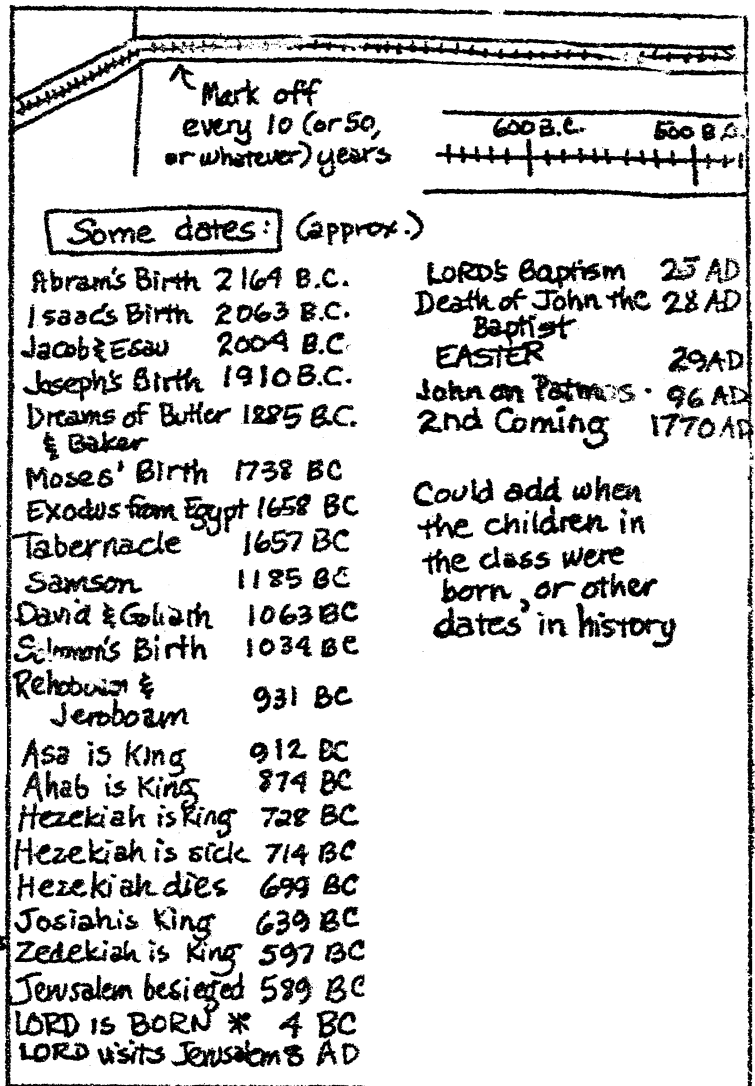 Mark off
every 10 (or 50,
or whatever) years
600 B.C. 500 B.C.
Some dates: (approx.)
Abram's Birth 2164 B.C.
Isaac's Birth 2063 B.C.
Jacob & Esau 2004 B.C.
Joseph's Birth 1910 B.C.
Dreams of Butler 1885 B.C.
& Baker
Moses' Birth 1738 BC
Exodus from Egypt 1658 BC
Tabernacle 1657 BC
Samson 1185 BC
David & Goliath 1063 BC
Solomon's Birth 1034 BC
Rehoboam &
Jeroboam 931 BC
Asa is King 912 BC
Ahab is King 874 BC
Hezekiah is King 728 BC
Hezekiah is sick 714 BC
Hezekiah dies 699 BC
Josiah is King 639 BC
Zedekiah is King 597 BC
Jerusalem besieged 589 BC
LORD IS BORN * 4 BC
LORD visits Jerusalem 8 AD
LORD'S Baptism 25 AD
Death of John the 28 AD
Baptist
EASTER 29 AD
John on Patmos 96 AD
2nd Coming 1770 AD
Could add when
the children in
the class were
born, or other
dates in history